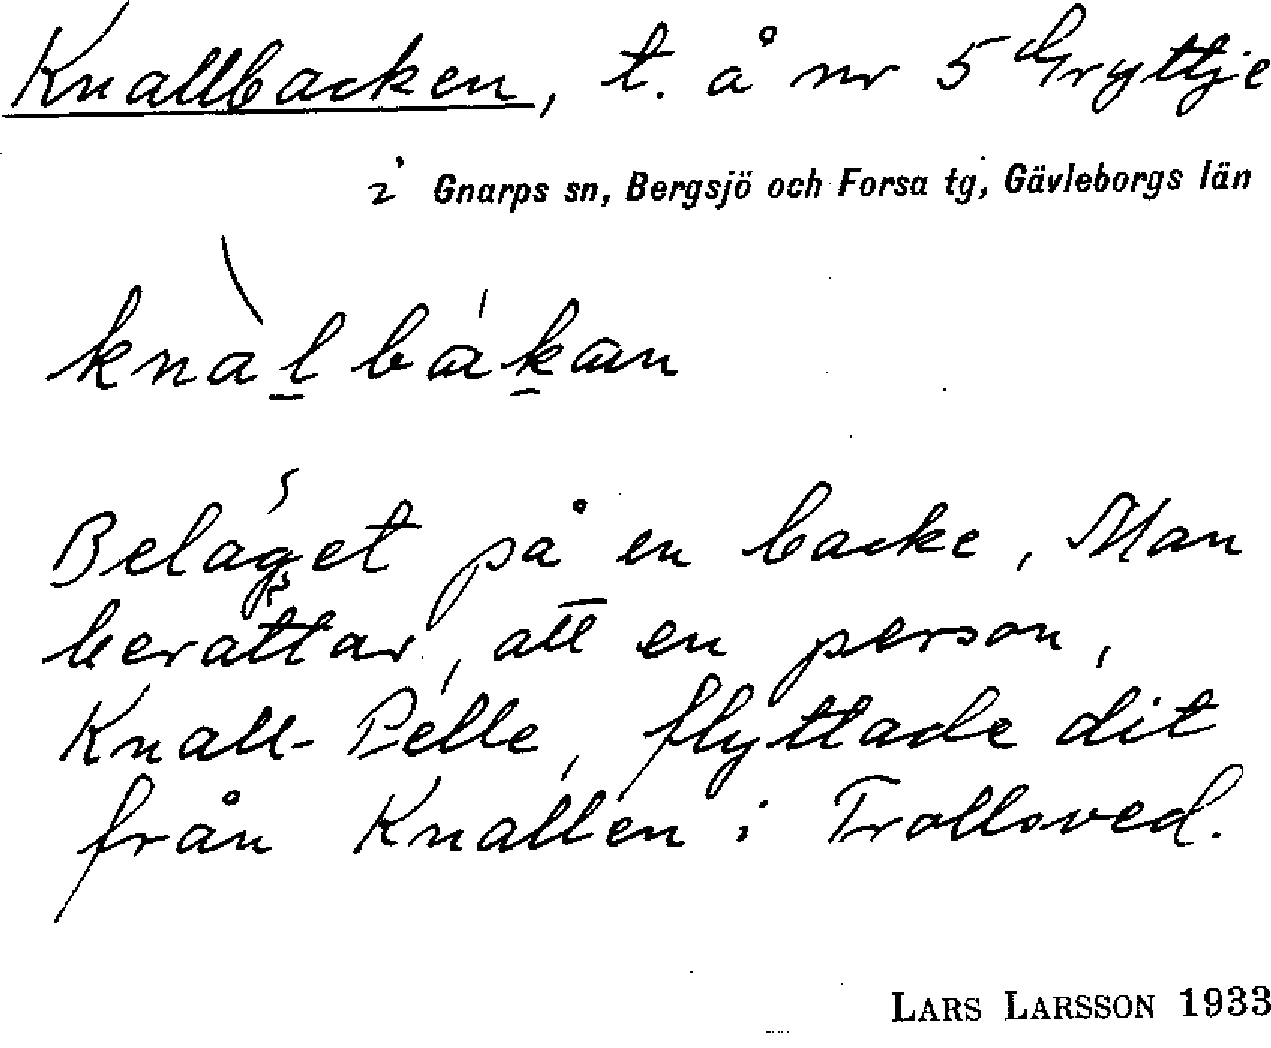 Knallbacken, t. å nr 5 Gryttje
i Gnarps sn, Bergsjö och Forsa tg, Gävleborgs län
knàl bákan
Beläget på en backe, Man
berättar, att en person,
Knall-Pelle, flyttade dit
från Knallen i Trollsved.
LARS LARSSON 1933